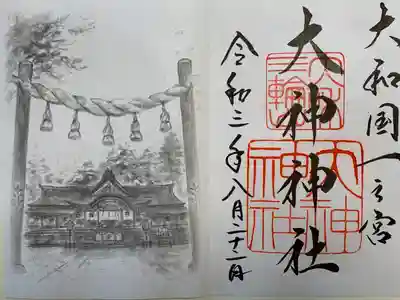 大和国一之宮
三輪山
大神神社
大神神社
令和三年八月二十一日